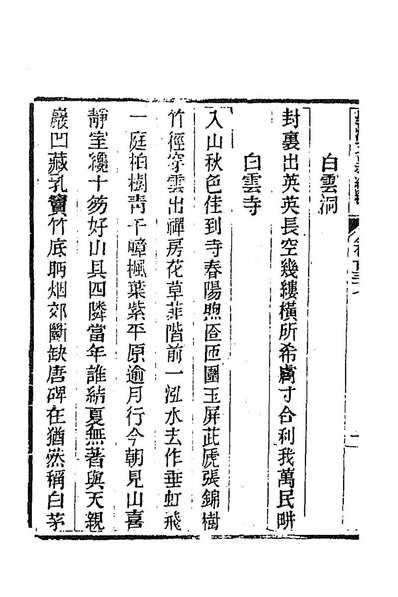 白雲洞
封裏出英英長空幾縷橫所希膚寸合利我萬民畊
白雲寺
入山秋色佳到寺春陽煦匼匝團玉屏茈虎張錦樹
竹徑穿雲出禪房花草菲階前一泓水去作垂虹飛
一庭柏樹青千嶂楓葉紫平原逾月行今朝見山喜
靜室纔十笏好山具四隣當年誰結夏無著與天親
巖凹藏乳竇竹底眄烟郊斷缺唐碑在猶然稱白茅